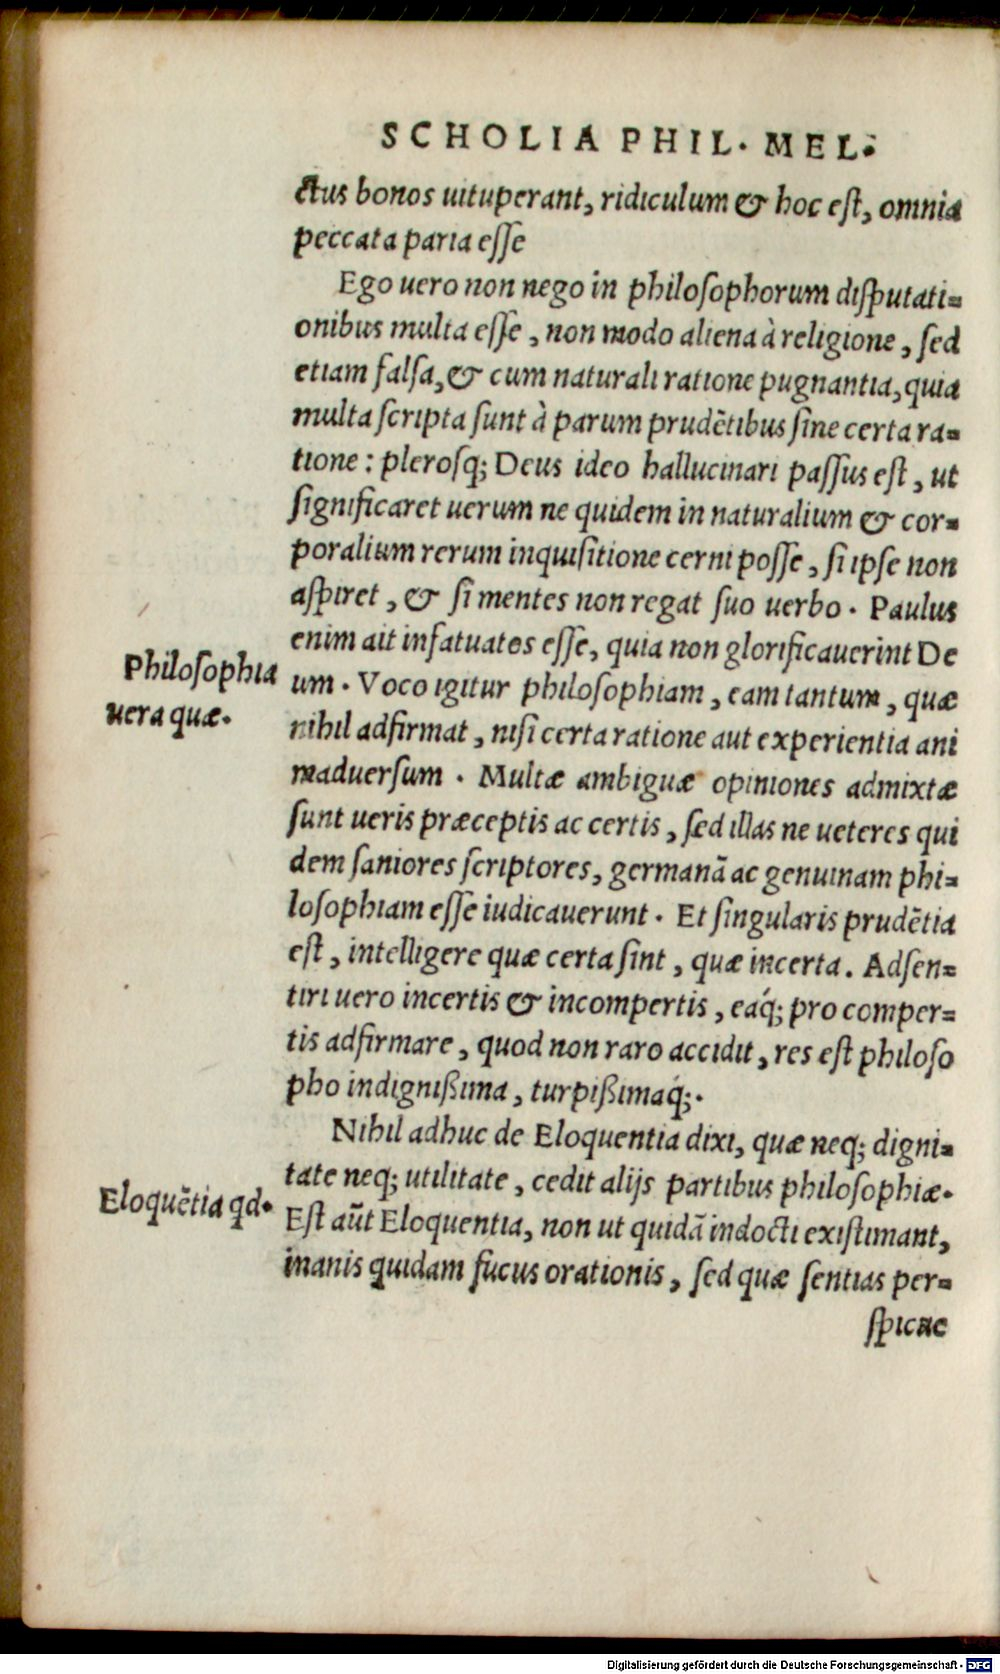 SCHOLIA PHIL. MEL.
ctus bonos uituperant, ridiculum & hoc est, omnia
peccata paria esse
Ego uero non nego in philosophorum disputati=
onibus multa esse, non modo aliena à religione, sed
etiam falsa, & cum naturali ratione pugnantia, quia
multa scripta sunt à parum prudẽtibus sine certa ra=
tione: plerosq; Deus ideo hallucinari passus est, ut
significaret uerum ne quidem in naturalium & cor=
poralium rerum inquisitione cerni posse, si ipse non
aspiret, & si mentes non regat suo uerbo. Paulus
enim ait infatuatos esse, quia non glorificauerint De
Philosophia
uera quæ.
um. Voco igitur philosophiam, eam tantum, quæ
nihil adfirmat, nisi certa ratione aut experientia ani
maduersum. Multæ ambiguæ opiniones admixtæ
sunt ueris præceptis ac certis, sed illas ne ueteres qui
dem saniores scriptores, germanã ac genuinam phi=
losophiam esse iudicauerunt. Et singularis prudẽtia
est, intelligere quæ certa sint, quæ incerta. Adsen=
tiri uero incertis & incompertis, eáq; pro comper=
tis adfirmare, quod non raro accidit, res est philoso
pho indignißima, turpißimaq́;.
Nihil adhuc de Eloquentia dixi, quæ neq; digni=
tate neq; utilitate, cedit alijs partibus philosophiæ.
Eloquẽtia qd.
Est aũt Eloquentia, non ut quidã indocti existimant,
inanis quidam fucus orationis, sed quæ sentias per=
spicue
Digitalisierung gefördert durch die Deutsche Forschungsgemeinschaft - DFG